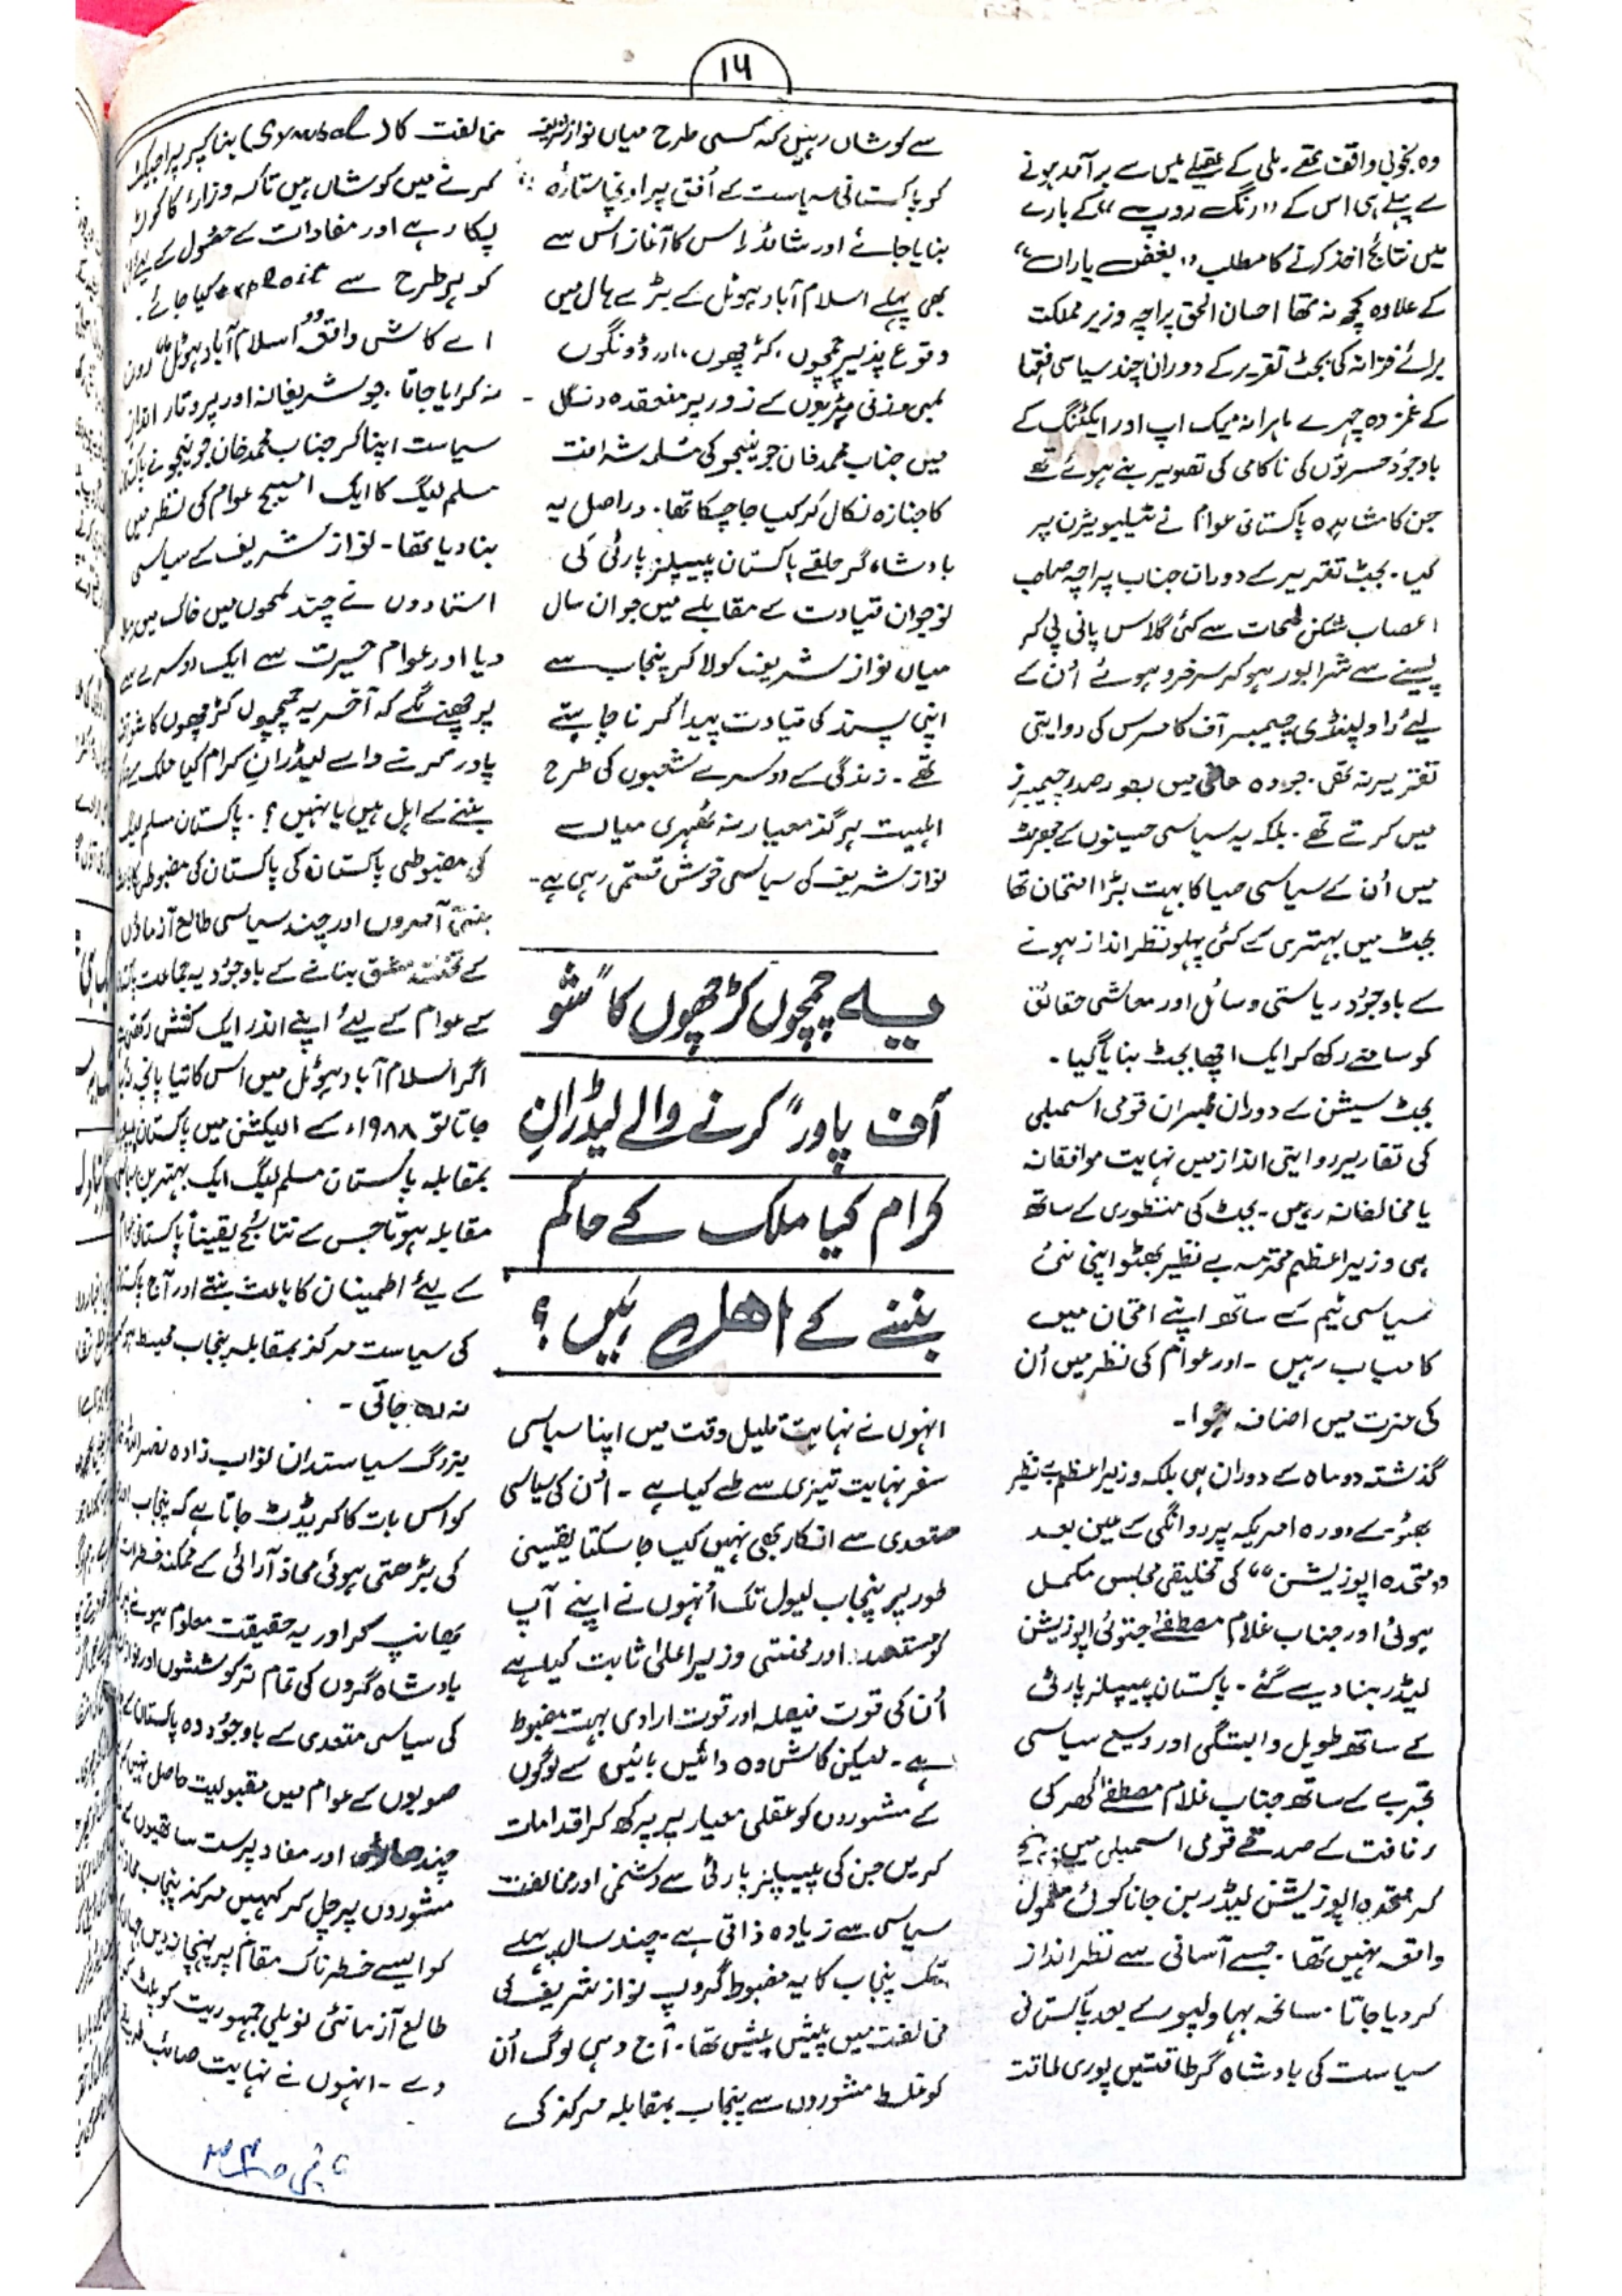 ۱۶
وہ بخوبی واقف تھے۔ بلی کے تھیلے میں سے برآمد ہونے
سے پہلے ہی اس کے "رنگ روپ" کے بارے
میں نتائج اخذ کرنے کا مطلب "بغض یاراں"
کے علاوہ کچھ نہ تھا احسان الحق پراچہ وزیر مملکت
برائے خزانہ کی بجٹ تقریر کے دوران چند سیاسی
کے غمزدہ چہرے ماہرانہ میک اپ اور ایکٹنگ کے
باوجود حسرتوں کی ناکامی کی تصویر بنے ہوئے تھے
جن کا مشاہدہ پاکستانی عوام نے ٹیلیویژن پر
کیا۔ بجٹ تقریر کے دوران جناب پراچہ صاحب
اعصاب شکن لمحات سے کئی گلاس پانی پی کر
پسینے سے شرابور ہو کر سرخرو ہوئے اُن کے
لیے راولپنڈی چیمبر آف کامرس کی روایتی
تقریر نہ تھی۔ جو وہ ماضی میں بطور صدر چیمبرز
میں کرتے تھے۔ بلکہ یہ سیاسی حسینوں کے جھرمٹ
میں اُن کے سیاسی حیا کا بہت بڑا امتحان تھا
بجٹ میں بہتری کے کئی پہلو نظر انداز ہونے
کے باوجود ریاستی وسائل اور معاشی حقائق
کو سامنے رکھ کر ایک اچھا بجٹ بنایا گیا۔
بجٹ سیشن کے دوران ممبران قومی اسمبلی
کی تقاریر روایتی انداز میں نہایت موافقانہ
یا مخالفانہ رہیں۔ بجٹ کی منظوری کے ساتھ
ہی وزیراعظم محترمہ بے نظیر بھٹو اپنی نئی
سیاسی ٹیم کے ساتھ اپنے امتحان میں
کامیاب رہیں۔ اور عوام کی نظر میں اُن
کی عزت میں اضافہ ہوا۔
گذشتہ دو ماہ کے دوران ہی بلکہ وزیراعظم بے نظیر
بھٹو کے دورہ امریکہ پر روانگی کے عین بعد
"متحدہ اپوزیشن" کی تخلیقی مجلس مکمل
ہوئی اور جناب غلام مصطفیٰ جتوئی اپوزیشن
لیڈر بنا دیے گئے۔ پاکستان پیپلز پارٹی
کے ساتھ طویل وابستگی اور وسیع سیاسی
تجربے کے ساتھ جناب غلام مصطفیٰ کھر کی
رفاقت کے صدقے قومی اسمبلی میں پہنچ
کر متحدہ اپوزیشن لیڈر بن جانا کوئی معمولی
واقعہ نہیں تھا۔ جسے آسانی سے نظر انداز
کر دیا جاتا۔ سانحہ بہاولپور کے بعد پاکستانی
سیاست کی بادشاہ گر طاقتیں پوری طاقت
سے کوشاں رہیں کہ کسی طرح میاں نواز شریف
کو پاکستانی سیاست کے اُفق پر اونچا ستارہ
بنایا جائے اور شائد اس کا آغاز اس سے
بھی پہلے اسلام آباد ہوٹل کے بڑے ہال میں
وقوع پذیر چمچوں، کڑچھوں، اور ڈونگوں
میں جناب محمد خان جونیجو کی مُسلمہ شرافت
کا جنازہ نکال کر کیا جا چکا تھا۔ دراصل یہ
بادشاہ گر حلقے پاکستان پیپلز پارٹی کی
نوجوان قیادت کے مقابلے میں جواں سال
میاں نواز شریف کو لا کر پنجاب سے
اپنی پسند کی قیادت پیدا کرنا چاہتے
تھے۔ زندگی کے دوسرے شعبوں کی طرح
اہلیت ہرگز معیار نہ ٹھہری میاں
نواز شریف کی سیاسی خوش قسمتی رہی ہے۔
یہ چمچوں کڑچھوں کا "شو
آف پاور" کرنے والے لیڈرانِ
کرام کیا ملک کے حاکم
بننے کے اھل ہیں؟
انہوں نے نہایت قلیل وقت میں اپنا سیاسی
سفر نہایت تیزی سے طے کیا ہے۔ اُن کی سیاسی
مستعدی سے انکار بھی نہیں کیا جا سکتا یقینی
طور پر پنجاب لیول تک اُنہوں نے اپنے آپ
کو مستعد اور محنتی وزیر اعلیٰ ثابت کیا ہے
اُن کی قوت فیصلہ اور قوت ارادی بہت مضبوط
ہے۔ لیکن کاش وہ دائیں بائیں کے لوگوں
کے مشوروں کو عقلی معیار پر پرکھ کر اقدامات
کریں جن کی پیپلز پارٹی سے دشمنی اور مخالفت
سیاسی سے زیادہ ذاتی ہے۔ چند سال پہلے
تک پنجاب کا یہ مضبوط گروپ نواز شریف کی
مخالفت میں پیش پیش تھا۔ آج وہی لوگ اُن
کو غلط مشوروں سے پنجاب بمقابلہ مرکز کی
مخالفت کا (Symbal) بنا کر پراجیکٹ
کرنے میں کوشاں ہیں تاکہ وزارء کا کورٹ
پکا رہے اور مفادات کے حصول کے لیے
کو ہر طرح سے exploit کیا جائے۔
اے کاش واقعہ "اسلام آباد ہوٹل"
نہ کرایا جاتا۔ جو شریفانہ اور پروقار انداز
سیاست اپنا کر جناب محمد خان جونیجو نے
مسلم لیگ کا ایک امیج عوام کی نظر میں
بنا دیا تھا۔ نواز شریف کے سیاسی
استادوں نے چند لمحوں میں خاک میں ملا
دیا اور عوام حیرت سے ایک دوسرے سے
پوچھنے لگے کہ آخر یہ چمچوں کڑچھوں کا شو آف
پاور کرنے والے لیڈرانِ کرام کیا ملک کے
بننے کے اہل ہیں یا نہیں؟۔ پاکستان مسلم لیگ
کی مضبوطی پاکستان کی پاکستان کی مضبوطی
آمروں اور چند سیاسی طالع آزماؤں
کے تختہ مشق بنانے کے باوجود یہ جماعت
کے عوام کے لیے اپنے اندر ایک کشش رکھتی
اگر اسلام آباد ہوٹل میں اس کا تیا پانچہ
جاتا تو ۱۹۸۸ء کے الیکشن میں پاکستان
بمقابلہ پاکستان مسلم لیگ ایک بہترین سیاسی
مقابلہ ہوتا جس کے نتائج یقیناً پاکستانی عوام
کے لیے اطمینان کا باعث بنتے اور آج
کی سیاست مرکز بمقابلہ پنجاب محیط ہو کر
نہ رہ جاتی۔
بزرگ سیاستدان نواب زادہ نصراللہ
کو اس بات کا کریڈٹ جاتا ہے کہ پنجاب
کی بڑھتی ہوئی محاذ آرائی کے ممکنہ خطرات
بھانپ کر اور یہ حقیقت معلوم ہونے
بادشاہ گروں کی تمام تر کوششوں اور
کی سیاسی مستعدی کے باوجود وہ پاکستان
صوبوں کے عوام میں مقبولیت حاصل نہیں
چند اور مفاد پرست ساتھیوں کے
مشوروں پر چل کر کہیں مرکز پنجاب
کو ایسے خطرناک مقام پر پہنچا نہ دیں جہاں
طالع آزما نئی نویلی جمہوریت کو پلٹ
دے۔ انہوں نے نہایت صائب